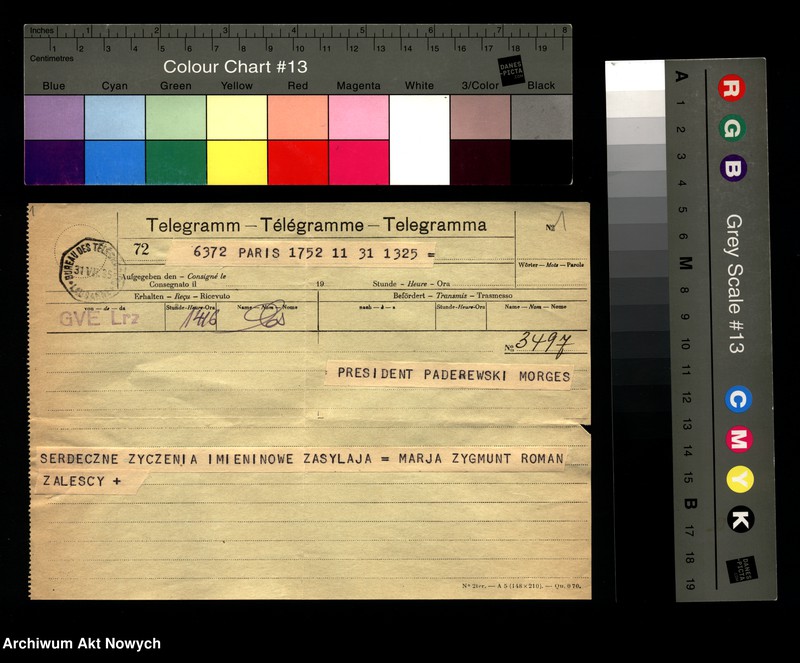 Inches 1 2 3 4 5 6 7 8
Centimetres 1 2 3 4 5 6 7 8 9 10 11 12 13 14 15 16 17 18 19
Colour Chart #13
DANES
PICTA
.COM
Blue Cyan Green Yellow Red Magenta White 3/Color Black
A 1 2 3 4 5 6 M 8 9 10 11 12 13 14 15 B 17 18 19
R G B
Grey Scale #13
C M Y K
DANES
PICTA
.COM
Telegramm — Télégramme — Telegramma
№ 1
72 6372 PARIS 1752 11 31 1325 =
Wörter — Mots — Parole
BUREAU DES
Aufgegeben den — Consigné le
Consegnato il 19 Stunde — Heure — Ora
Erhalten — Reçu — Ricevuto Befördert — Transmis — Trasmesso
von — de — da Stunde-Heure-Ora Name — Nom — Nome nach — à — a Stunde-Heure-Ora Name — Nom — Nome
GVE Lrz 1416
№ 3497
PRESIDENT PADEREWSKI MORGES
SERDECZNE ZYCZENIA IMIENINOWE ZASYLAJA = MARJA ZYGMUNT ROMAN
ZALESCY +
N° 2ter. — A 5 (148 x 210). — Qu. 0 70.
Archiwum Akt Nowych